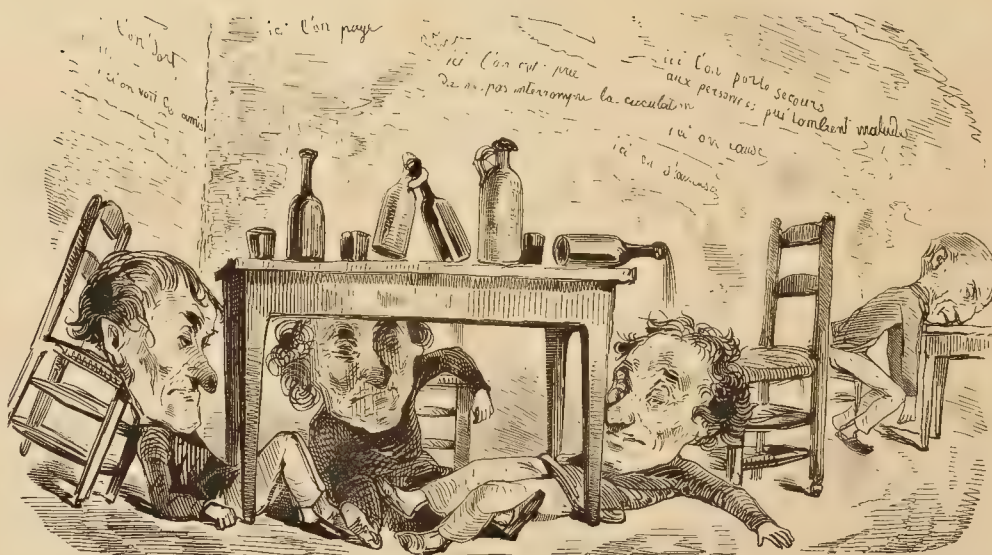 l'on dort
ici
ici on voit les amis
ici l'on paye
ici l'on est prié
De ne pas interrompre la circulation
ici l'on porte secours
aux personnes qui tombent malades
ici on cause
ici on s'amuse